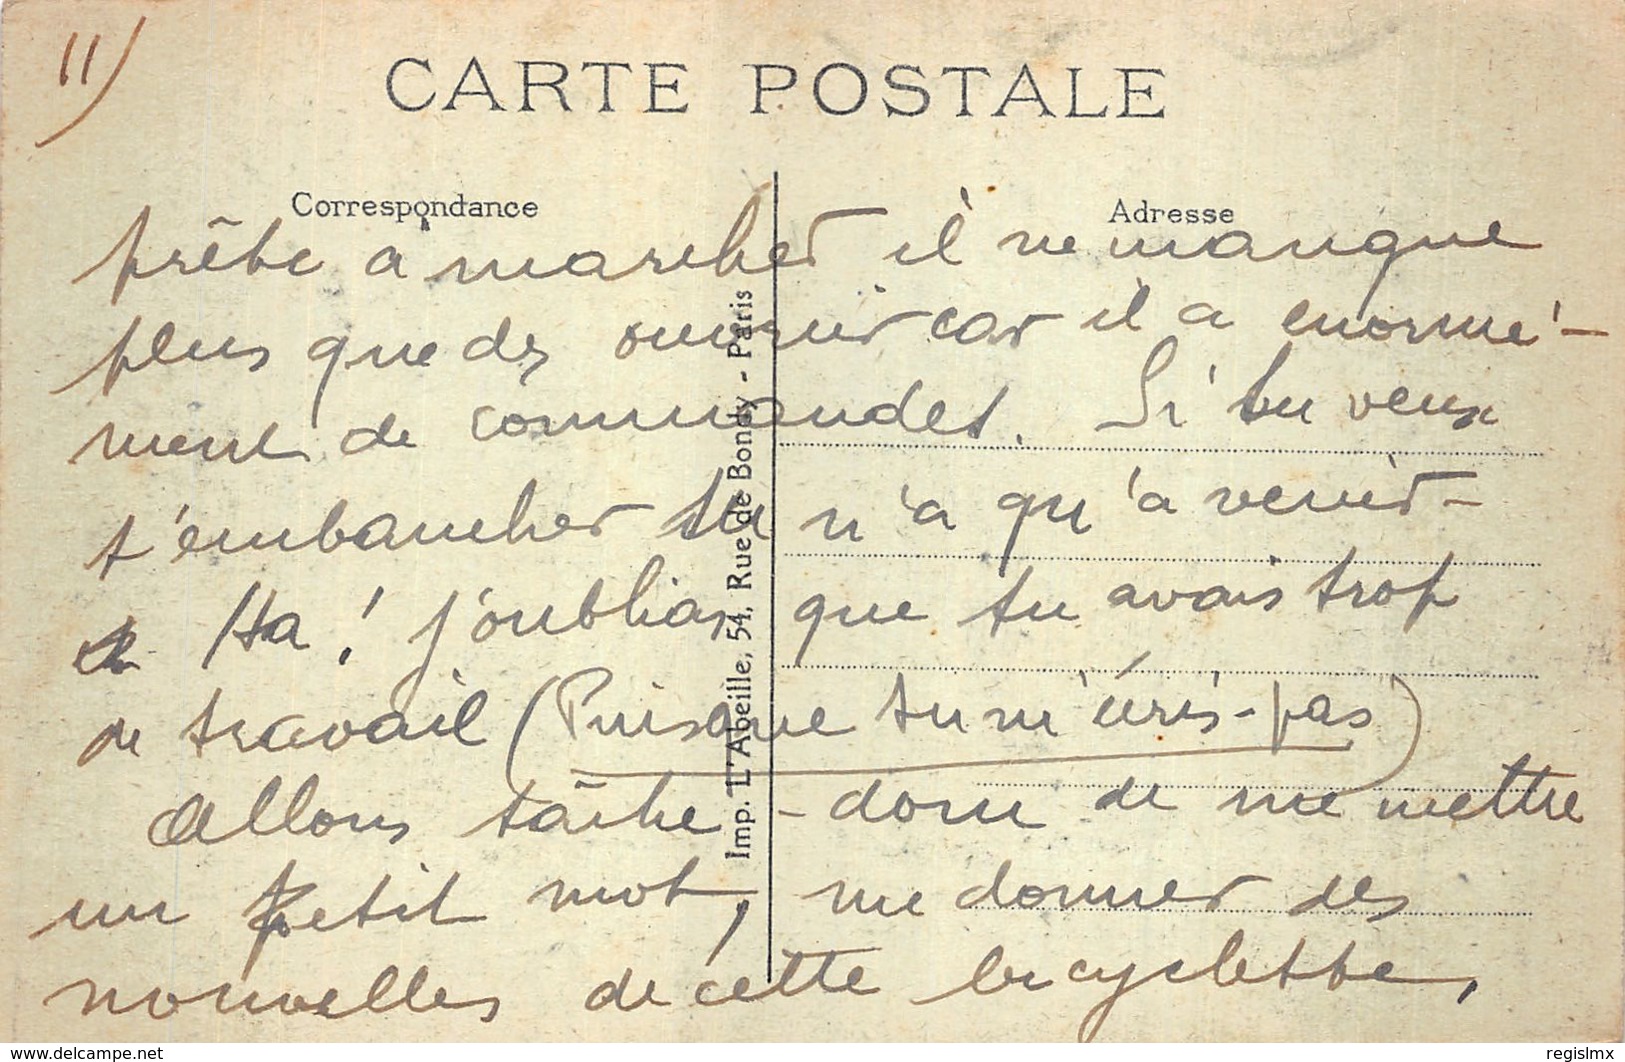 11)
CARTE POSTALE
Correspondance
Adresse
prête a marcher il ne manque
plus que des ouvrier car il a enormé-
ment de commandes. Si tu veux
t'embaucher tu n'a qu'a venir-
Ha! j'oublias que tu avais trop
de travail (Puisque tu m'écris-pas)
Allons tâche - donc de me mettre
un petit mot, me donner des
nouvelles de cette bicyclette,
Imp. L'Abeille, 54, Rue de Bondy - Paris
www.delcampe.net
regislmx